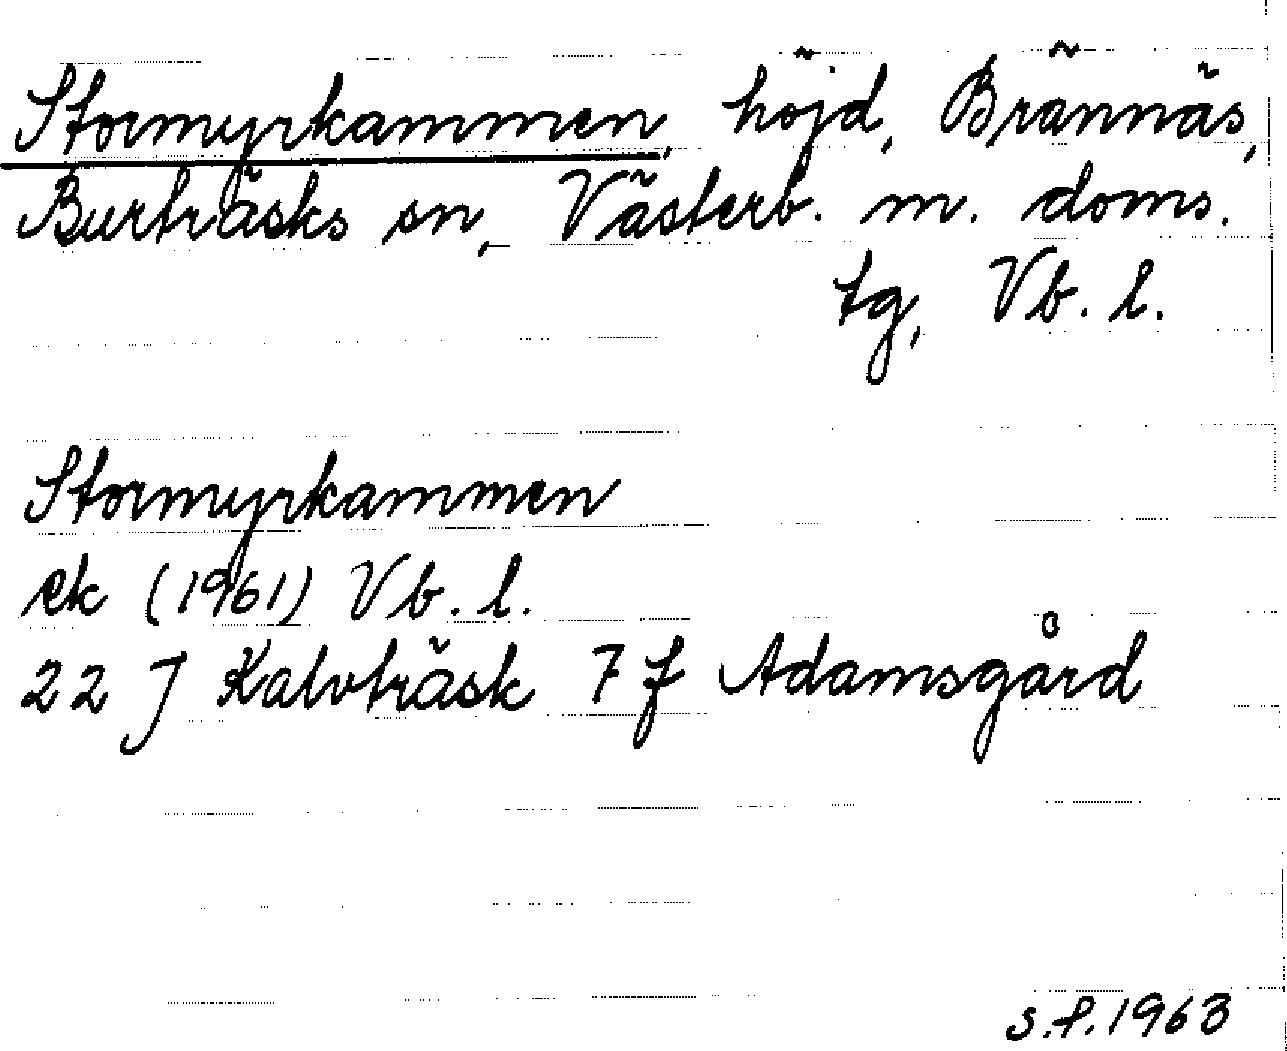 Stormyrkammen, höjd, Brännäs,
Burträsks sn, Västerb. m. doms.
tg, Vb. l.
Stormyrkammen
ek (1961) Vb. l.
22 J Kalvträsk 7 f Adamsgård
s.f. 1963